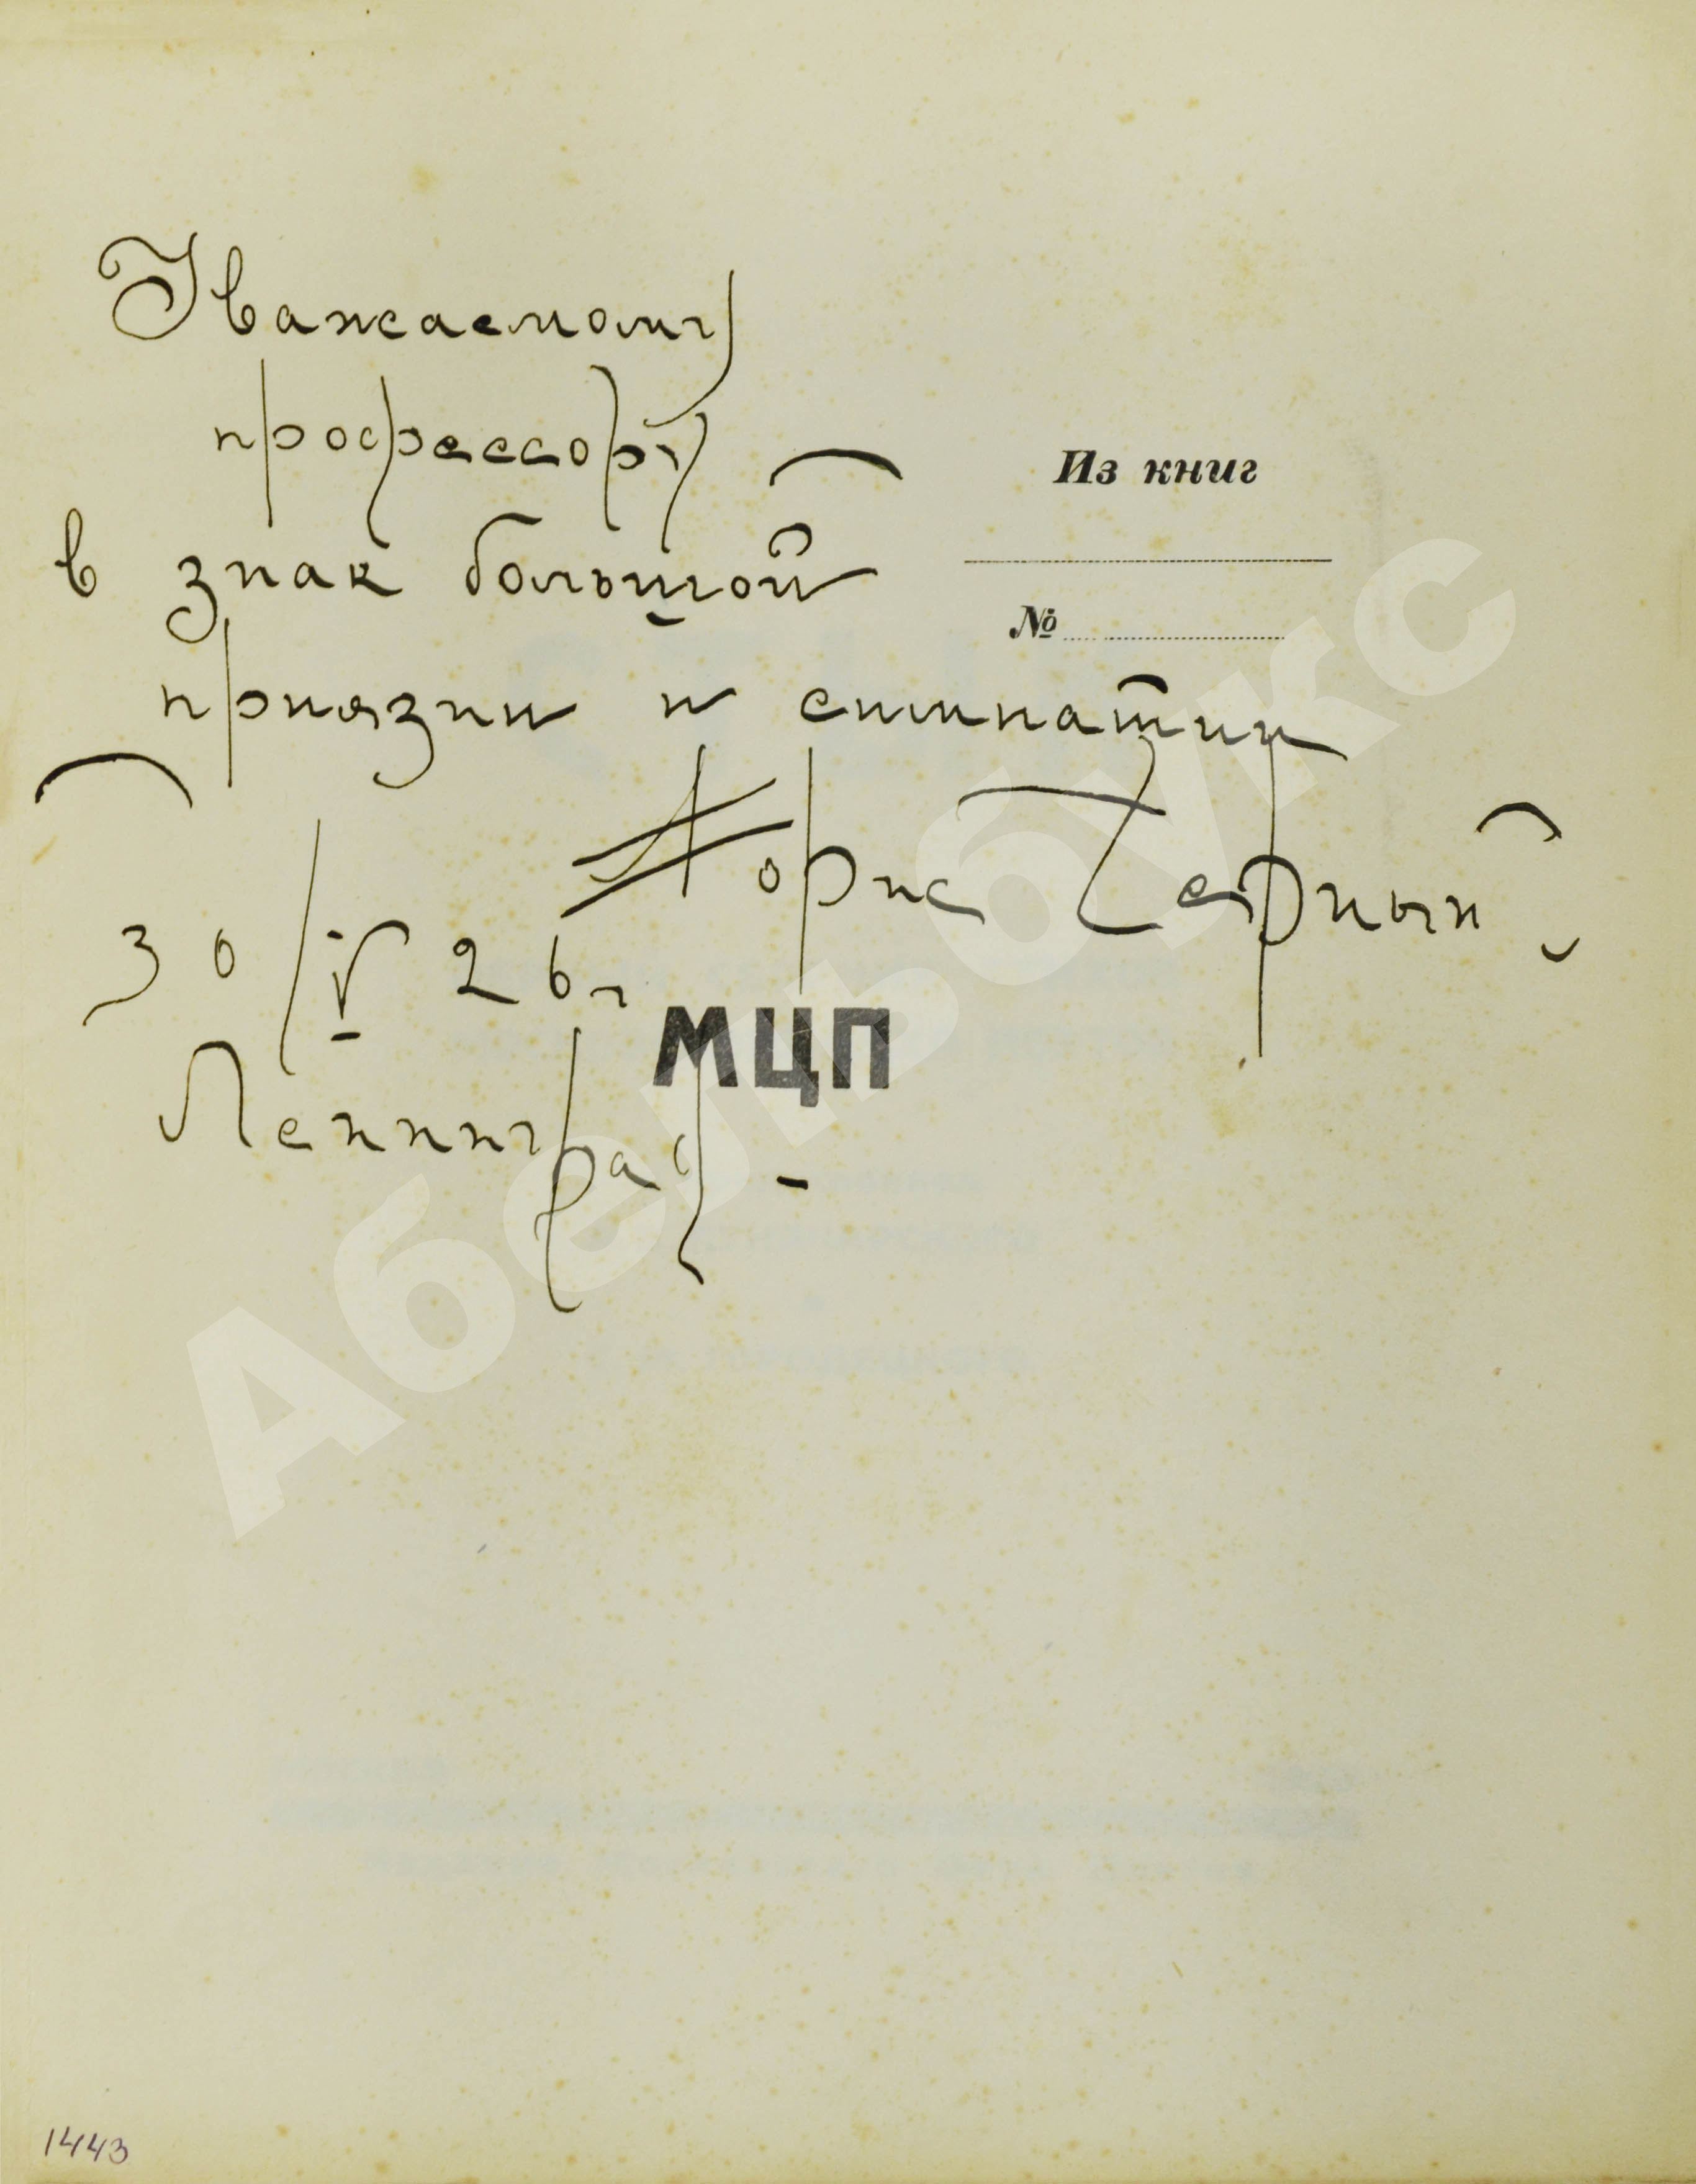 Уважаемому
профессору
в знак большой
приязни и симпатии
Борис Черный
30/IV 26 г
Ленинград -
Из книг
№
МЦП
Абельбукс
1443